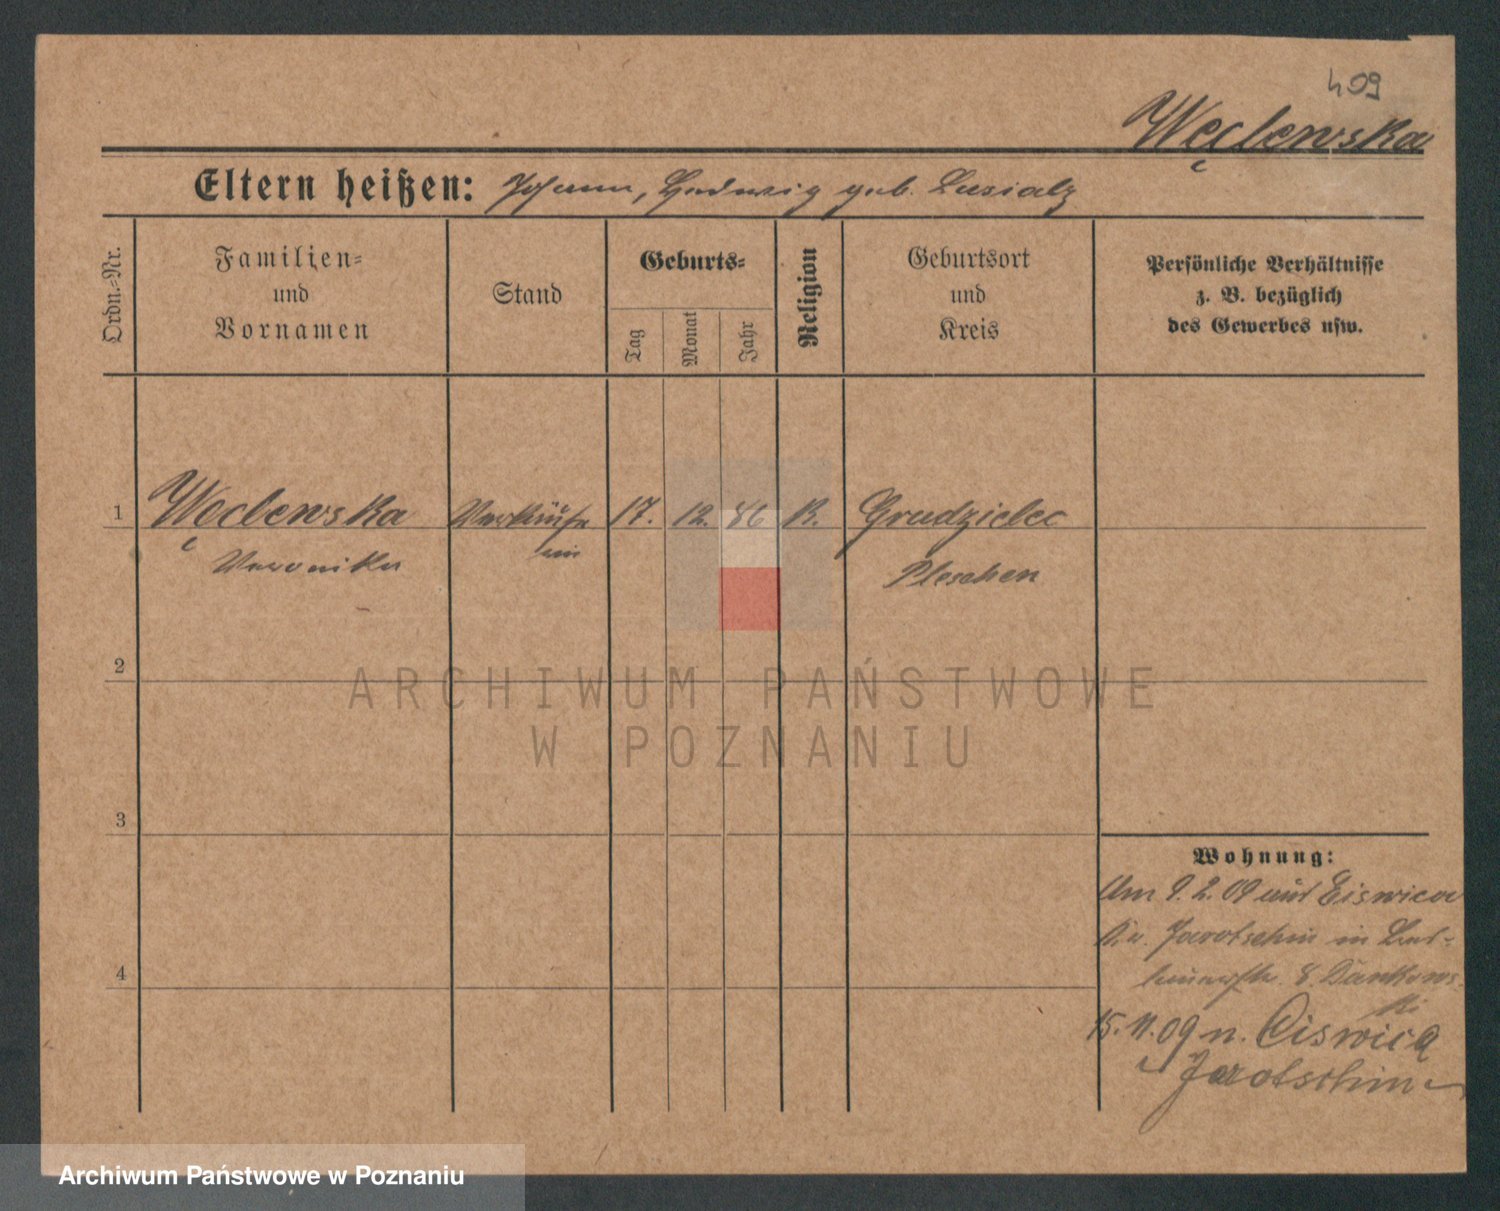 409
Węclewska
Eltern heißen: Johann, Hedwig geb.
Ordn.-Nr.
Familien-
und
Vornamen
Stand
Geburts-
Tag
Monat
Jahr
Religion
Geburtsort
und
Kreis
Persönliche Verhältnisse
z. B. bezüglich
des Gewerbes usw.
1 Węclewska Verkäufe 17. 12. 86 K. Grudzielec
Veronika rin Pleschen
2
3
4
Wohnung:
Am 9. 2. 09 aus
Jarotschin in
15. 11. 09 n. Ciswica
Jarotschin
ARCHIWUM PAŃSTWOWE
W POZNANIU
Archiwum Państwowe w Poznaniu